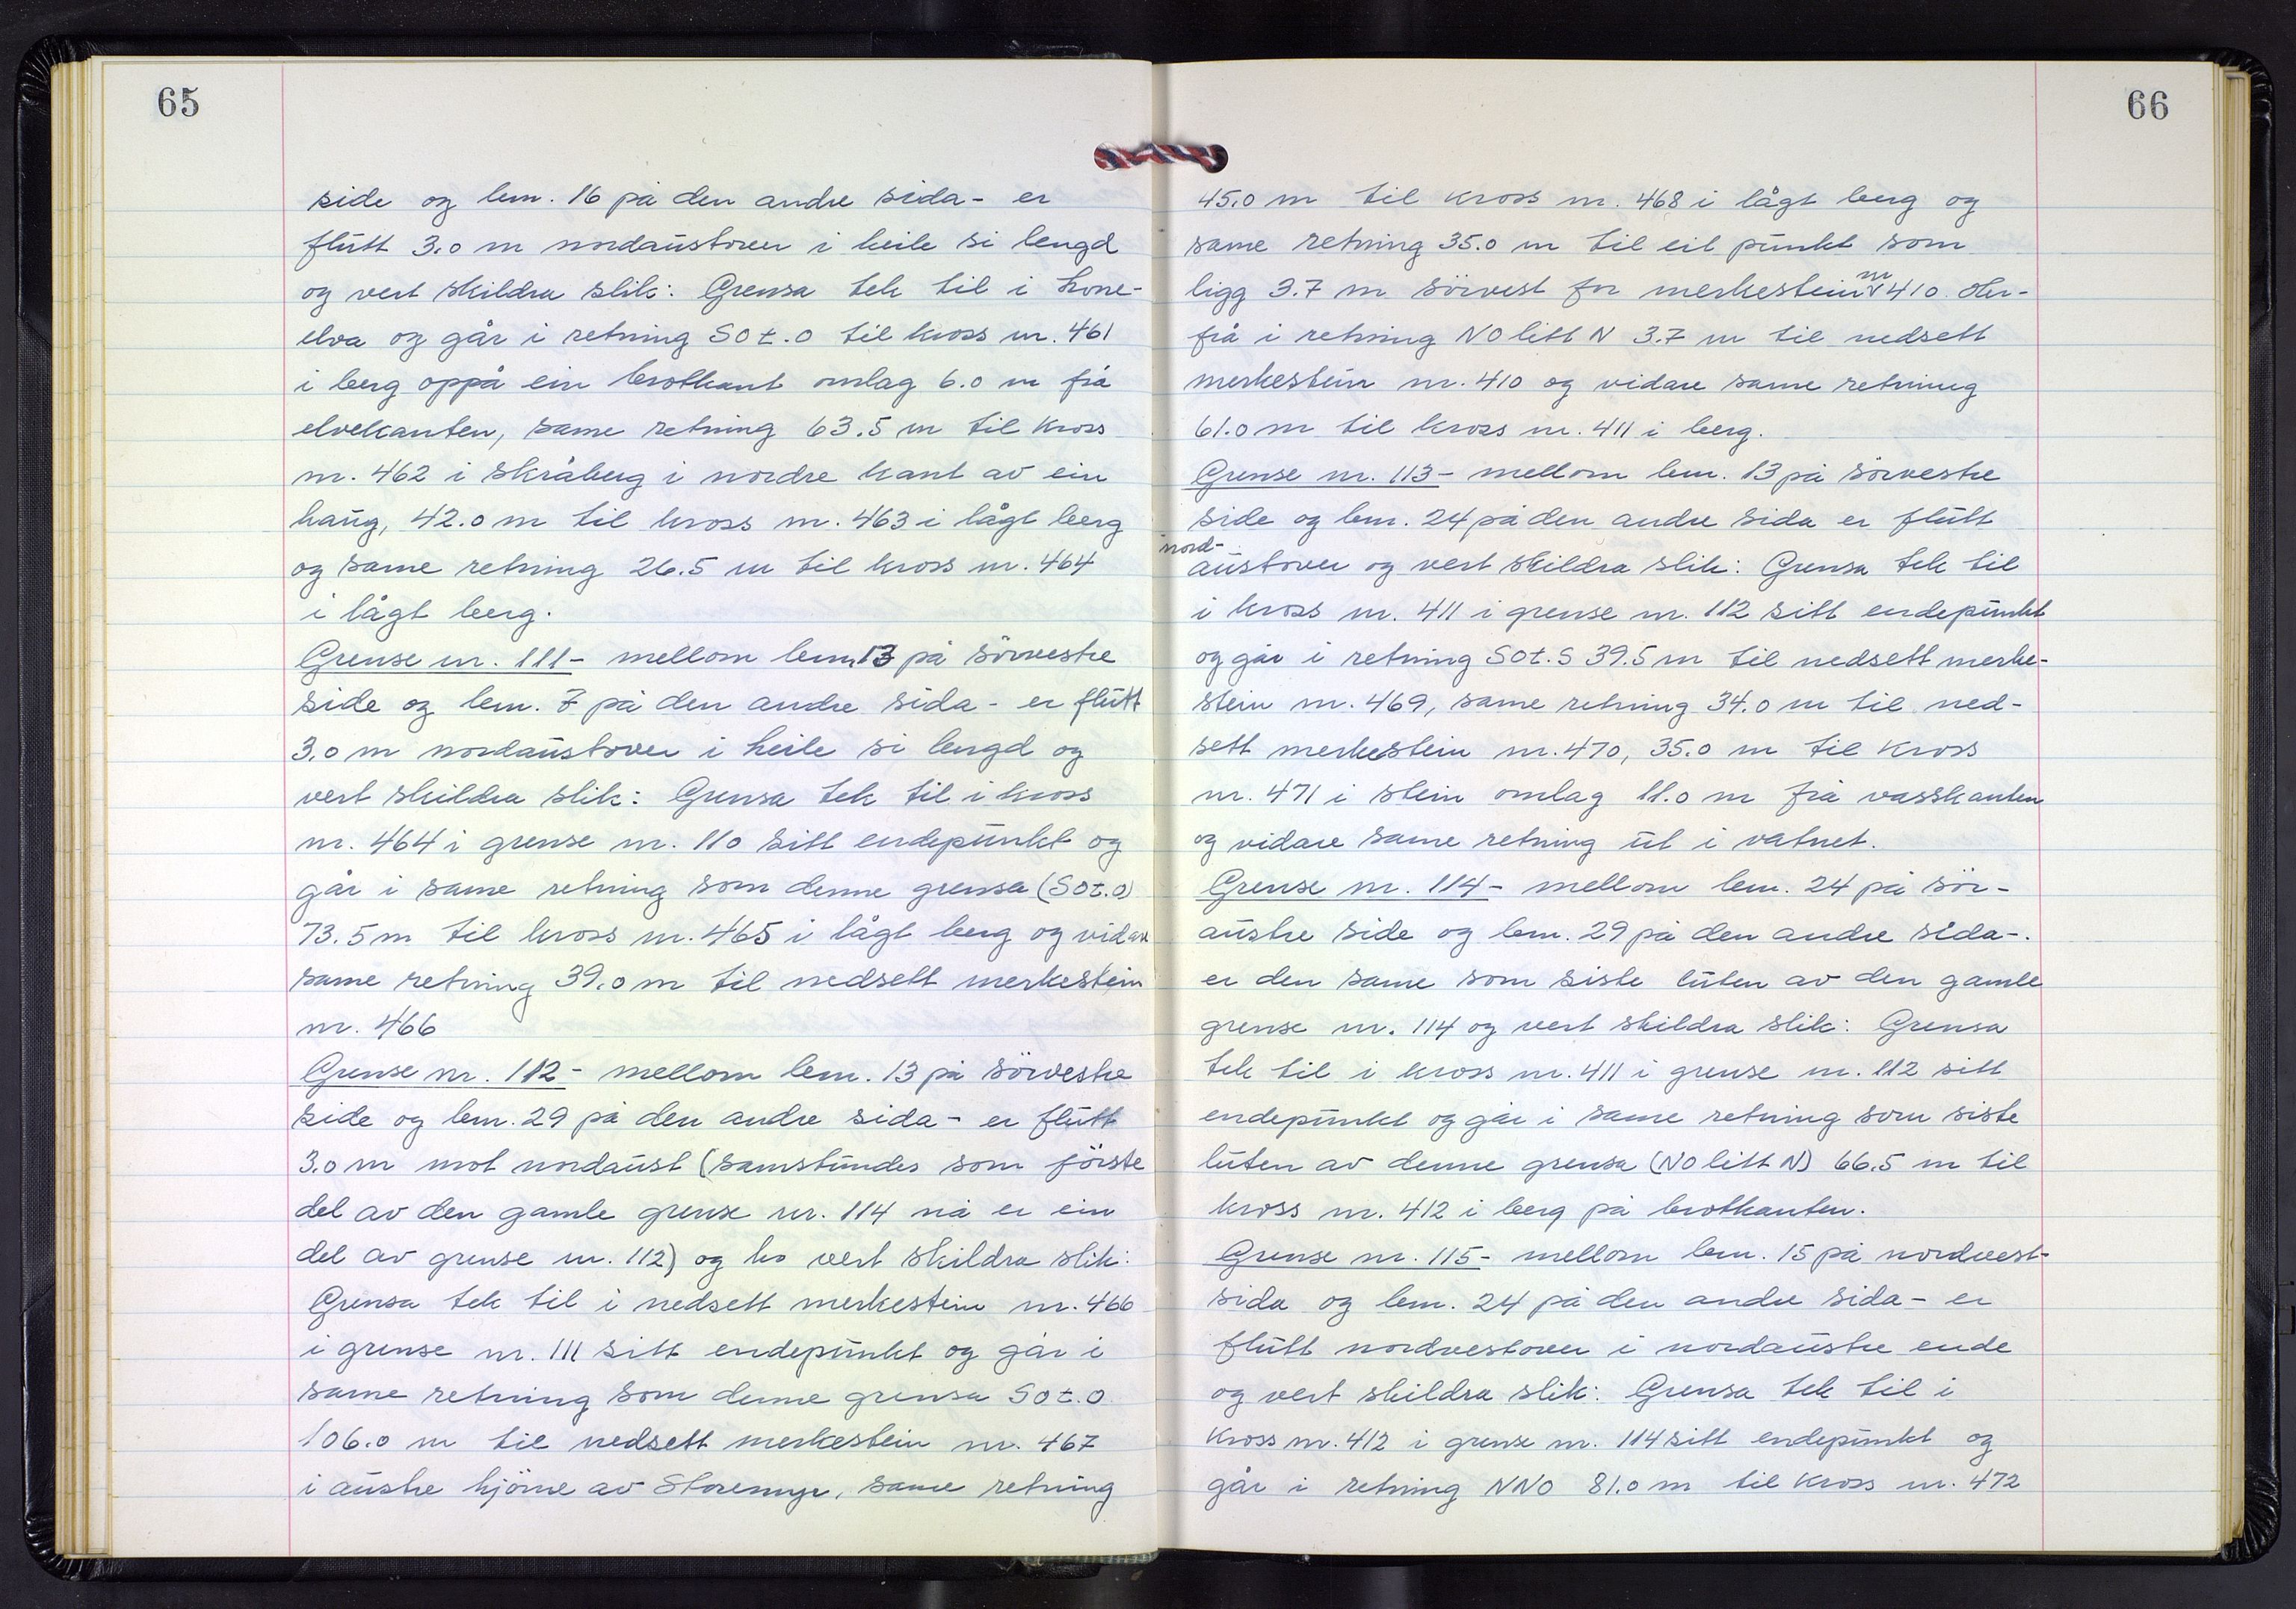 65
side og lem. 16 på den andre sida- er
flútt 3.0 m nordaústover i heile si lengd
og vert skildra slik: Grensa tek til i Lone-
elva og går i retning SO t. O til kross nr. 461
i berg oppå ein brotkant omlag 6.0 m frå
elvekanten, same retning 63.5 m til kross
nr. 462 i skråberg i nordre kant av ein
haúg, 42.0 m til kross nr. 463 i lågt berg
og same retning 26.5 m til kross nr. 464
i lågt berg.
Grense nr. 111- mellom lem. 13 på sörvestre
side og lem. 7 på den andre sida- er flútt
3.0 m nordaústover i heile si lengd og
vert skildra slik: Grensa tek til i kross
nr. 464 i grense nr. 110 sitt endepúnkt og
går i same retning som denne grensa (SO t. O)
73.5 m til kross nr. 465 i lågt berg og vidare
same retning 39.0 m til nedsett merkestein
nr. 466
Grense nr. 112- mellom lem. 13 på sörvestre
side og lem. 29 på den andre sida- er flútt
3.0 m mot nordaúst (samstúndes som förste
del av den gamle grense nr. 114 nå er ein
del av grense nr. 112) og ho vert skildra slik:
Grensa tek til i nedsett merkestein nr. 466
i grense nr. 111 sitt endepúnkt og går i
same retning som denne grensa SO t. O
106.0 m til nedsett merkestein nr. 467
i aústre hjörne av Storemyr, same retning
66
45.0 m til kross nr. 468 i lågt berg og
same retning 35.0 m til eit púnkt som
ligg 3.7 m sörvest for merkestein nr 410. Her-
frå i retning NO litt N 3.7 m til nedsett
merkestein nr. 410 og vidare same retning
61.0 m til kross nr. 411 i berg.
Grense nr. 113- mellom lem. 13 på sörvestre
side og lem. 24 på den andre sida er flútt
nord-
aústover og vert skildra slik: Grensa tek til
i kross nr. 411 i grense nr. 112 sitt endepúnkt
og går i retning SO t. S 39.5 m til nedsett merke-
stein nr. 469, same retning 34.0 m til ned-
sett merkestein nr. 470, 35.0 m til kross
nr. 471 i stein omlag 11.0 m frå vasskanten
og vidare same retning út i vatnet.
Grense nr. 114- mellom lem. 24 på sör-
aústre side og lem. 29 på den andre sida-.
er den same som siste lúten av den gamle
grense nr. 114 og vert skildra slik: Grensa
tek til i kross nr. 411 i grense nr. 112 sitt
endepúnkt og går i same retning som siste
lúten av denne grensa (NO litt N) 66.5 m til
kross nr. 412 i berg på brotkanten.
Grense nr. 115- mellom lem. 15 på nordvest-
sida og lem. 24 på den andre sida- er
flútt nordvestover i nordaústre ende
og vert skildra slik: Grensa tek til i
kross nr. 412 i grense nr. 114 sitt endepúnkt og
går i retning NNO 81.0 m til kross nr. 472